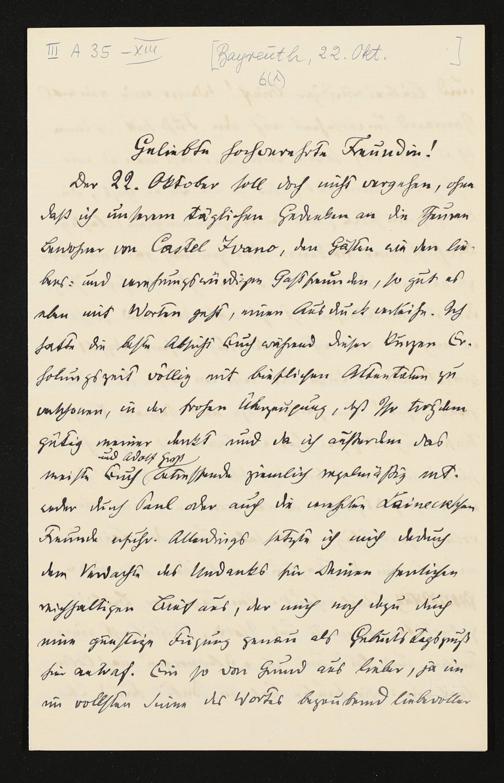 III A 35 - XIII [Bayreuth, 22. Okt. ]
6(?)
Geliebte hochverehrte Freundin!
Der 22. Oktober soll doch nicht vergehen, ohne
daß ich unserem täglichen Gedenken an die theuren
Bewohner von Castel Ivano, den Gästen wie den lie-
bens- und verehrungswürdigen Gastfreunden, so gut es
eben mit Worten geht, einen Ausdruck verleihe. Ich
hatte die beste Absicht Euch während dieser kurzen Er-
holungszeit völlig mit brieflichen Attentaten zu
verschonen, in der frohen Überzeugung, daß Ihr trotzdem
gütig meiner denkt und da ich außerdem das
und Adolf Groß
meiste Euch betreffende ziemlich regelmäßig ent-
weder durch Paul oder auch die verehrten
Freunde erfuhr. Allerdings setzte ich mich dadurch
dem Verdachte des Undanks für Deinen herrlichen
reichhaltigen Brief aus, der mich noch dazu durch
eine günstige Fügung genau als Geburtstagsgruß
hier antraf. Ein so von Grund aus lieber, ja im
im vollsten Sinne des Wortes bezaubernd liebevoller